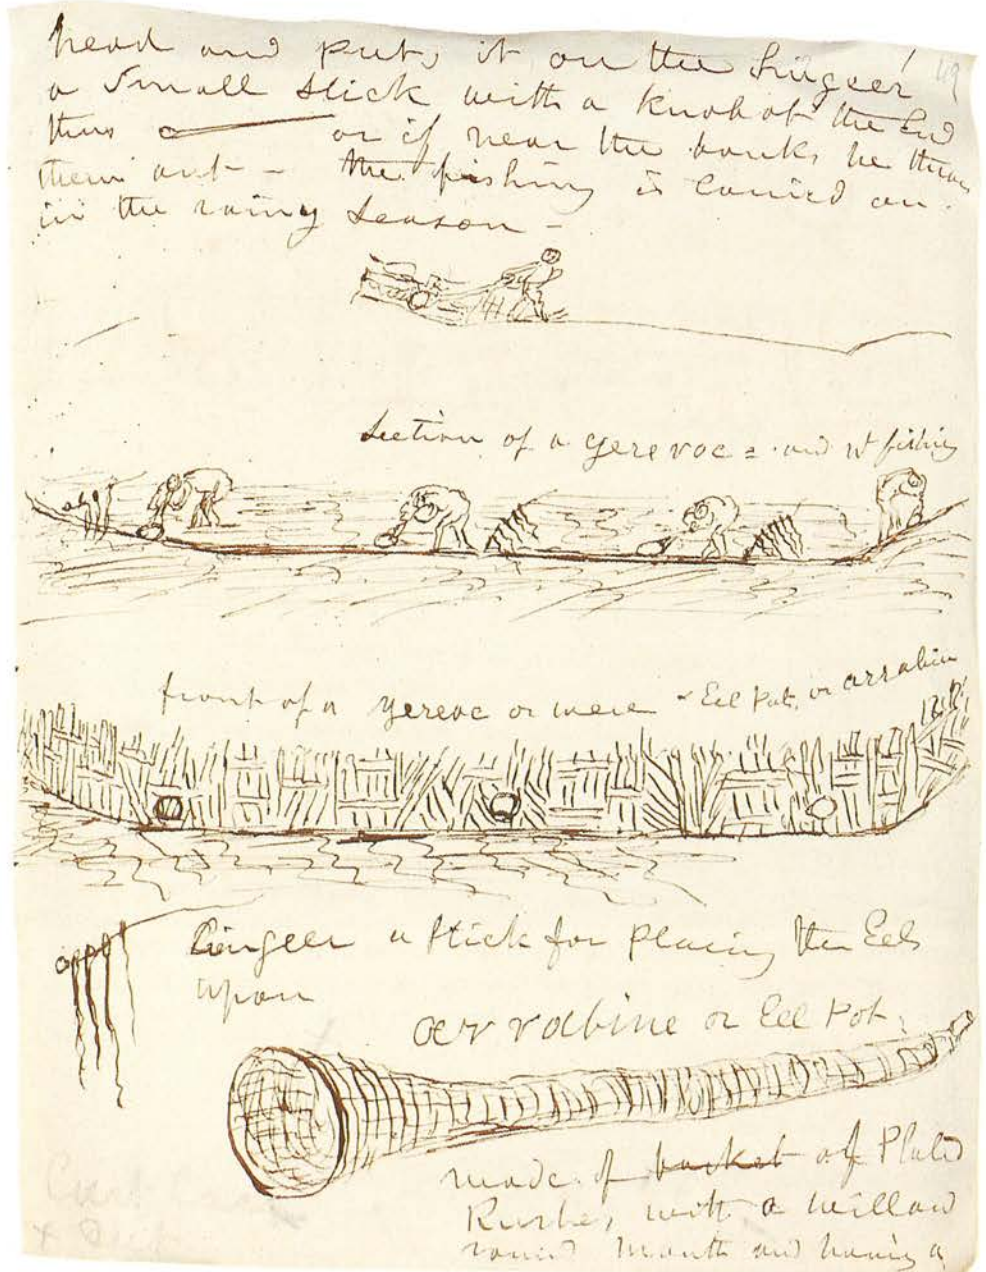 head and puts it on the lingeer
a small stick with a knob at the End
thus or if near the banks he throws
them out - the fishing is carried on
in the rainy season -
section of a yere roc = and it fishing
front of a yereoc or were - Eel Pots, or arrabin
Lingeer a stick for placing the Eels
upon
arrabine or Eel Pot,
made of basket of Plated
Rushes, with a willow
round mouth and having a